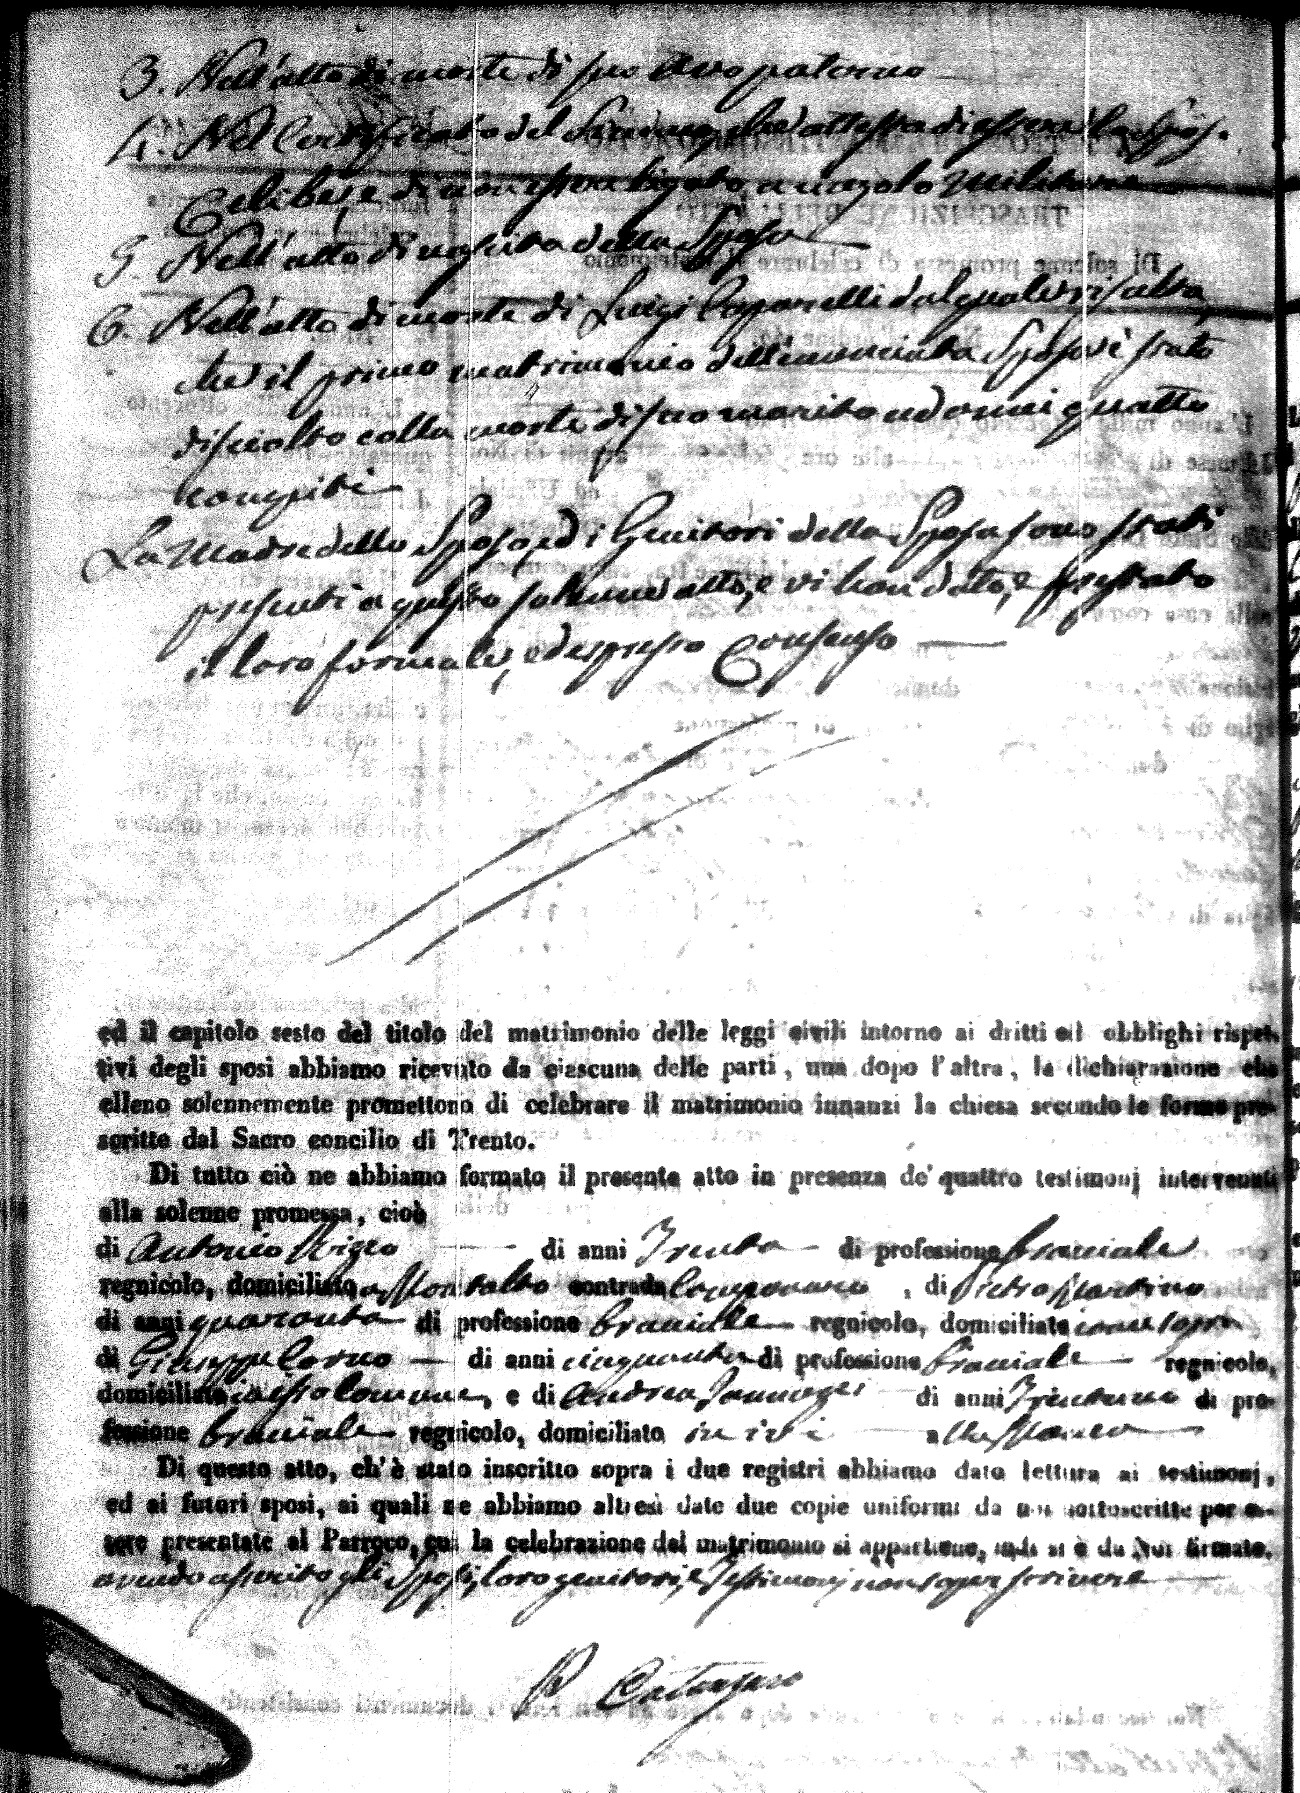 3. Nell'atto di morte di suo Avo paterno
4. Nel Certificato del Sindaco, che attesta di essere lo Sposo
Celibe, e di non essere ligato a vincolo Militare
5. Nell'atto di nascita della Sposa
6. Nell'atto di morte di Luigi dal quale risulta,
che il primo matrimonio dell'enunciata Sposa è stato
disciolto colla morte di suo marito ad anni quattro
compiti
La Madre dello Sposo, ed i Genitori della Sposa sono stati
presenti a questo solenne atto, e vi han dato, e prestato
il loro formale, ed espresso Consenso
ed il capitolo sesto del titolo del matrimonio delle leggi civili intorno ai dritti ed obblighi rispet-
tivi degli sposi abbiamo ricevuto da ciascuna delle parti, una dopo l'altra, la dichiarazione che
elleno solennemente promettono di celebrare il matrimonio innanzi la chiesa secondo le forme pre-
scritte dal Sacro concilio di Trento.
Di tutto ciò ne abbiamo formato il presente atto in presenza de' quattro testimonj intervenuti
alla solenne promessa, cioè
di Antonio Rizzo di anni Trenta di professione bracciale
regnicolo, domiciliato a Montalto contrada , di Pietro Martino
di anni quaranta di professione bracciale regnicolo, domiciliato come sopra
di Giuseppe di anni cinquanta di professione bracciale regnicolo,
domiciliato in esso Comune, e di Andrea di anni di pro-
fessione bracciale regnicolo, domiciliato in ivi
Di questo atto, ch'è stato inscritto sopra i due registri abbiamo dato lettura ai testimonj,
ed ai futuri sposi, ai quali ne abbiamo altresì date due copie uniformi da noi sottoscritte per es-
sere presentate al Parroco, cui la celebrazione del matrimonio si appartiene, indi si è da Noi firmato,
avendo asserito gli Sposi, loro genitori, e Testimonj non saper scrivere